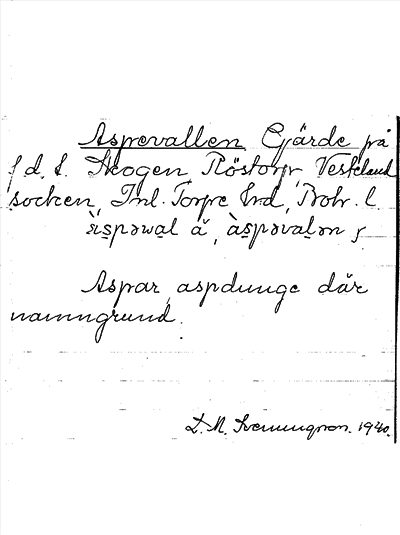 Aspevallen Gjärde på
f.d. s. Skogen Röstorp, Vesteland
socken, Inl. Torpe hrd, Boh. l
àspəwal ä, àspəvalən
Aspar, aspdunge där
namngrund.
D. M. Svenungsson. 1940.